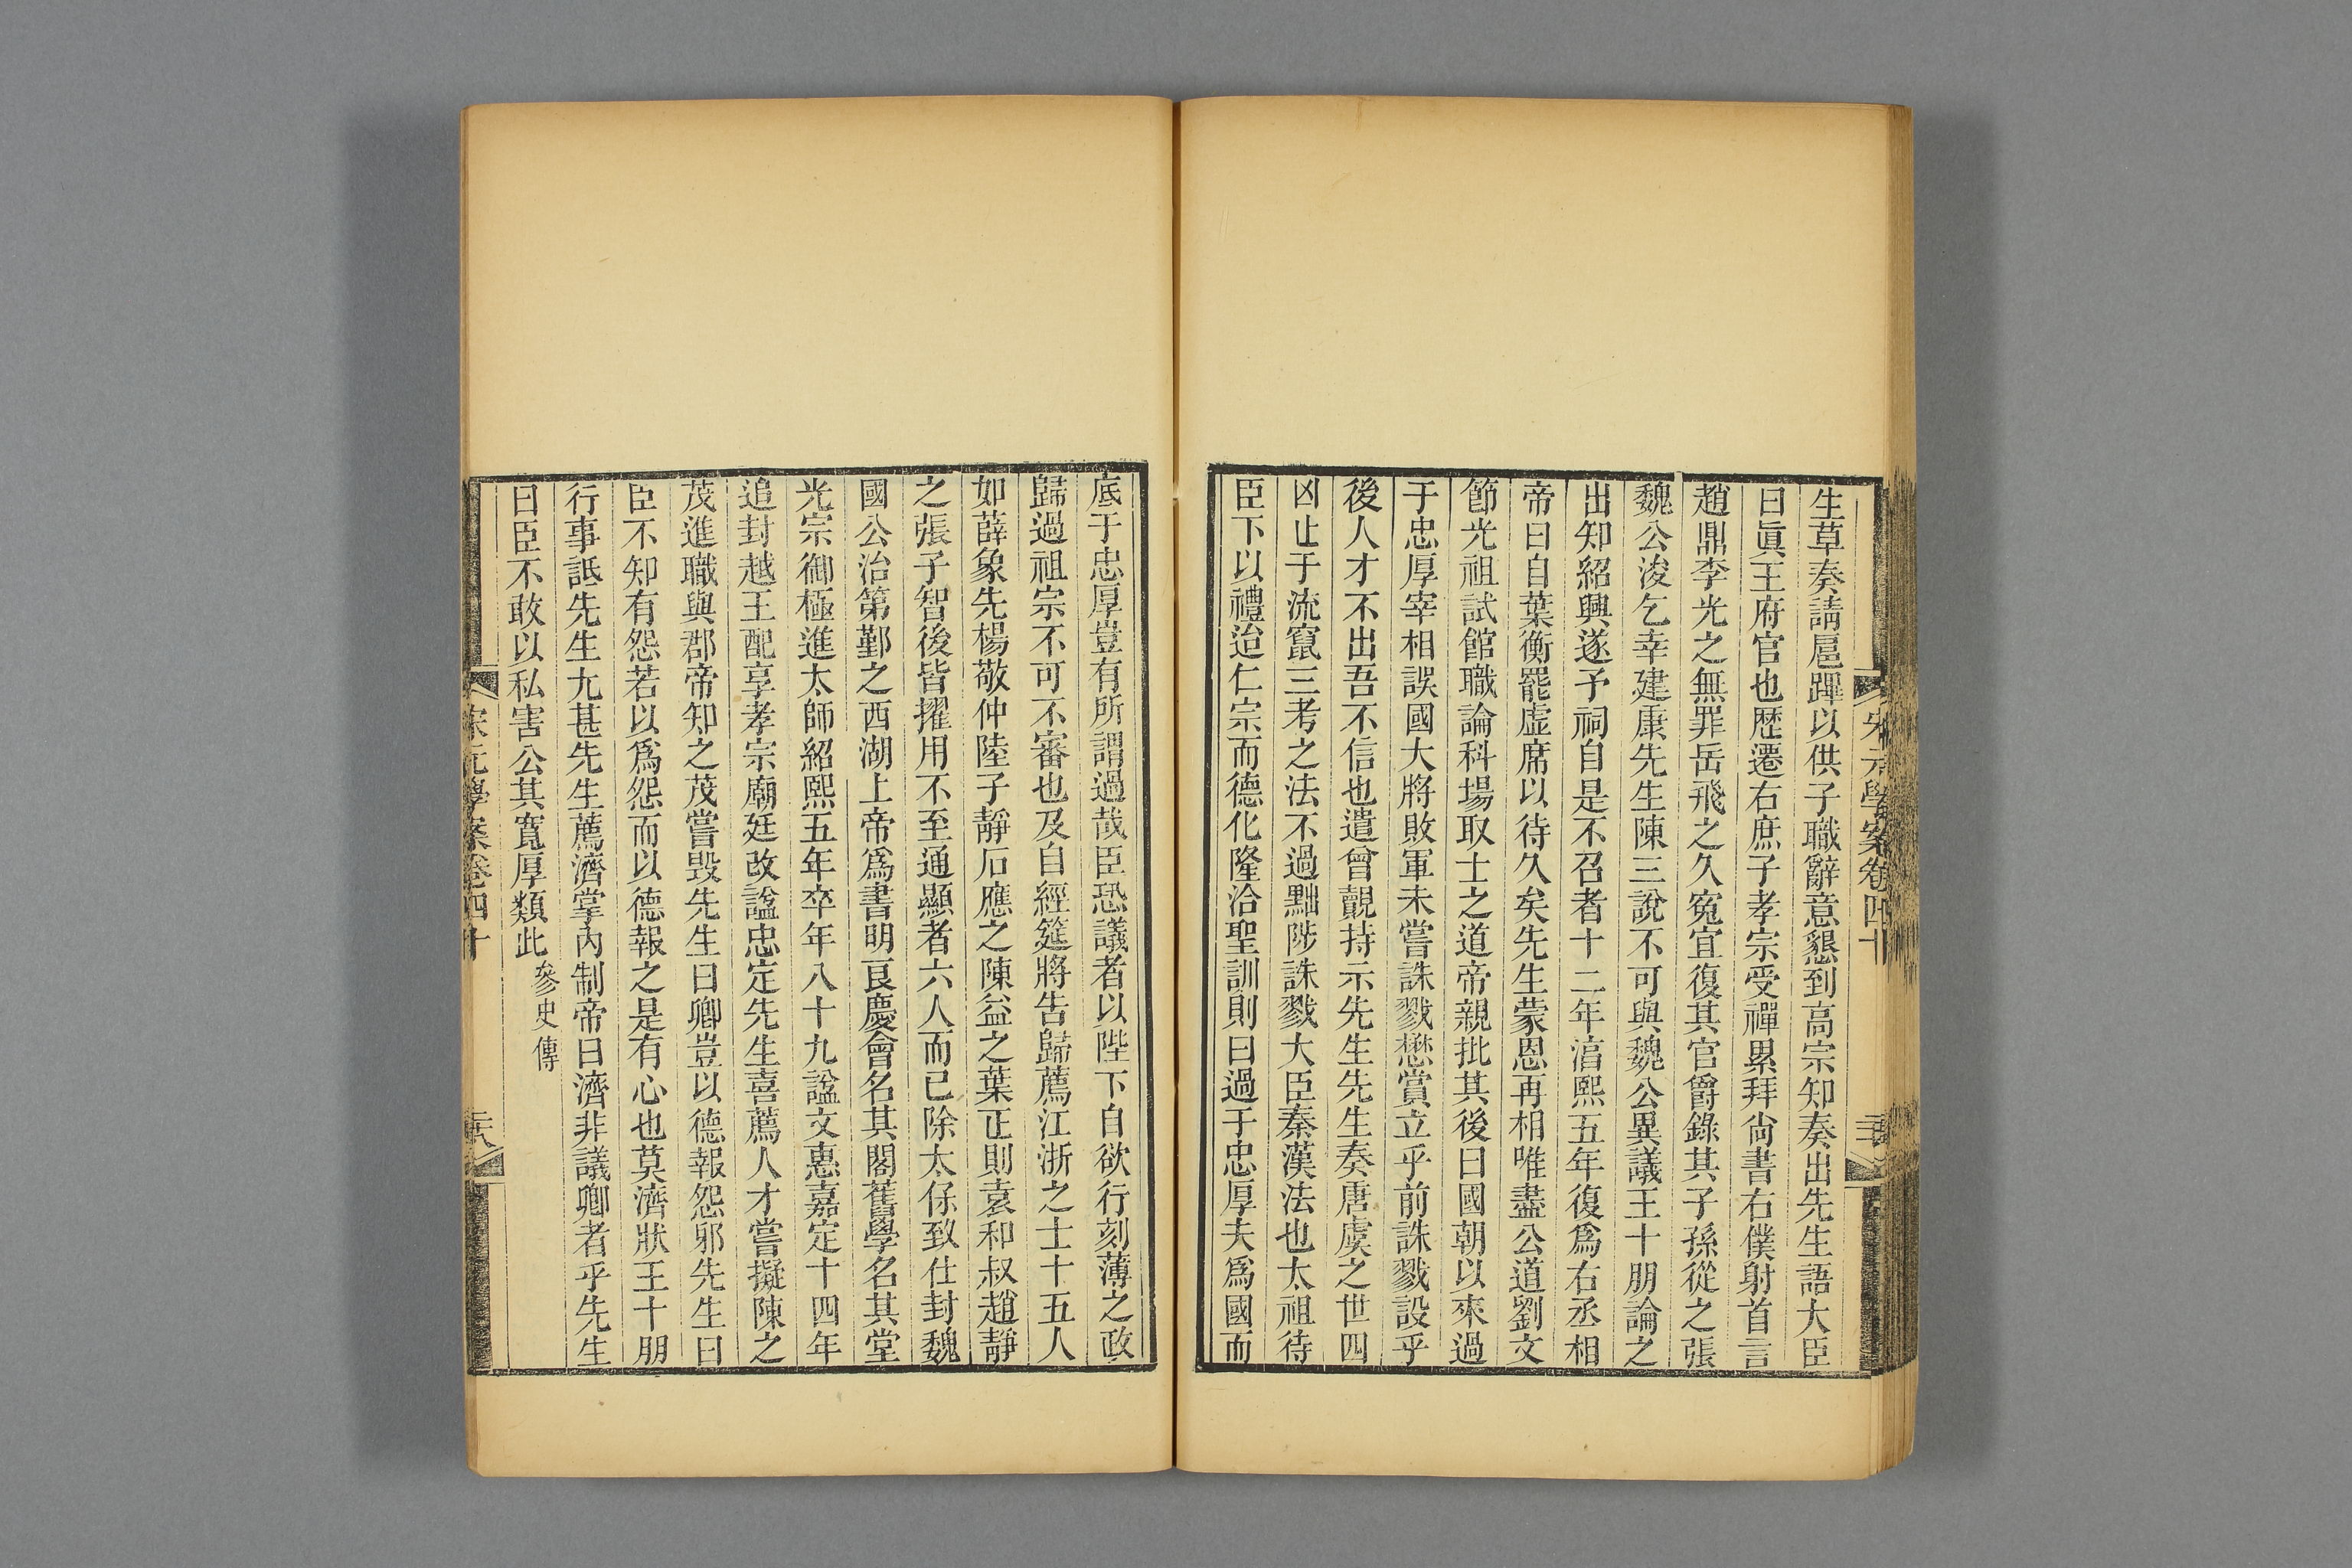 生草奏請扈蹕以供子職辭意懇到高宗知奏出先生語大臣
曰眞王府官也歷遷右庶子孝宗受禪累拜尙書右僕射首言
趙鼎李光之無罪岳飛之久寃宜復其官爵錄其子孫從之張
魏公浚乞幸建康先生陳三說不可與魏公異議王十朋論之
出知紹興遂予祠自是不召者十二年淳熙五年復爲右丞相
帝曰自葉衡罷虛席以待久矣先生蒙恩再相唯盡公道劉文
節光祖試館職論科場取士之道帝親批其後曰國朝以來過
于忠厚宰相誤國大將敗軍未嘗誅戮懋賞立乎前誅戮設乎
後人才不出吾不信也遣曾覿持示先生先生奏唐虞之世四
凶止于流竄三考之法不過黜陟誅戮大臣秦漢法也太祖待
臣下以禮迨仁宗而德化隆洽聖訓則曰過于忠厚夫爲國而
底于忠厚豈有所謂過哉臣恐議者以陛下自欲行刻薄之政
歸過祖宗不可不審也及自經筵將告歸薦江浙之士十五人
如薛象先楊敬仲陸子靜石應之陳益之葉正則袁和叔趙靜
之張子智後皆擢用不至通顯者六人而已除太保致仕封魏
國公治第鄞之西湖上帝爲書明良慶會名其閣舊學名其堂
光宗御極進太師紹熙五年卒年八十九諡文惠嘉定十四年
追封越王配享孝宗廟廷改諡忠定先生喜薦人才嘗擬陳之
茂進職與郡帝知之茂嘗毀先生曰卿豈以德報怨邪先生曰
臣不知有怨若以爲怨而以德報之是有心也莫濟狀王十朋
行事詆先生尤甚先生薦濟掌內制帝曰濟非議卿者乎先生
曰臣不敢以私害公其寬厚類此參史傳
宋元學案卷四十